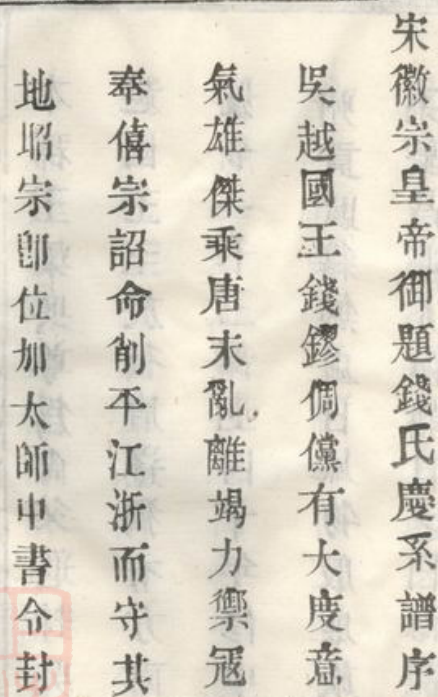 宋徽宗皇帝御題錢氏慶系譜序
吳越國王錢鏐倜儻有大度意
氣雄傑乘唐末亂離竭力禦冦
奉僖宗詔命削平江浙而守其
地昭宗卽位加太師中書令封